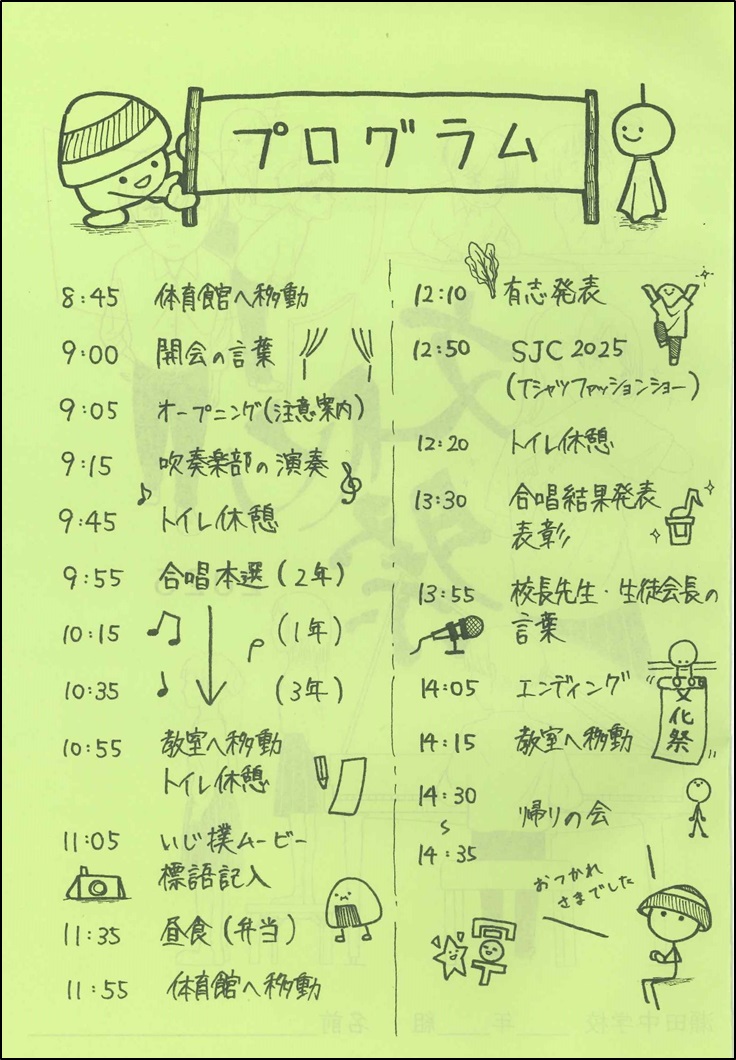 プログラム
8:45 体育館へ移動
9:00 開会の言葉
9:05 オープニング(注意案内)
9:15 吹奏楽部の演奏
9:45 トイレ休憩
9:55 合唱本選(2年)
10:15 (1年)
10:35 (3年)
10:55 教室へ移動
トイレ休憩
11:05 いじ撲ムービー
標語記入
11:35 昼食(弁当)
11:55 体育館へ移動
12:10 有志発表
12:50 SJC 2025
(Tシャツファッションショー)
12:20 トイレ休憩
13:30 合唱結果発表
表彰
13:55 校長先生・生徒会長の
言葉
14:05 エンディング
文化祭
14:15 教室へ移動
14:30
帰りの会
14:35
おつかれ
さまでした